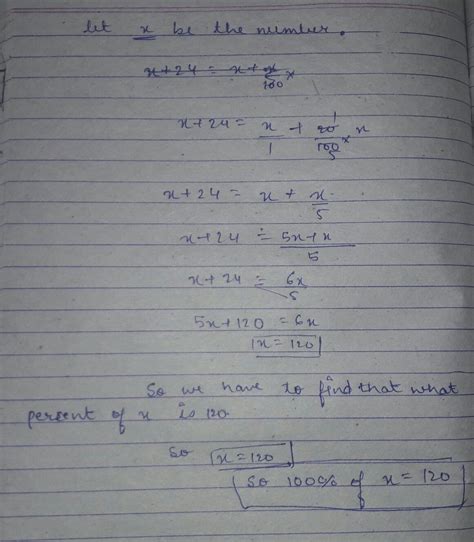 let x be the number.
x+24 = x + x/100 x
x+24 = x/1 + 20/100 × x 1 5
x+24 = x + x/5
x+24 = 5x+x/5
x+24 = 6x/5
5x+120 = 6x
x = 120
So we have to find that what
percent of x is 120
So x = 120
So 100% of x = 120